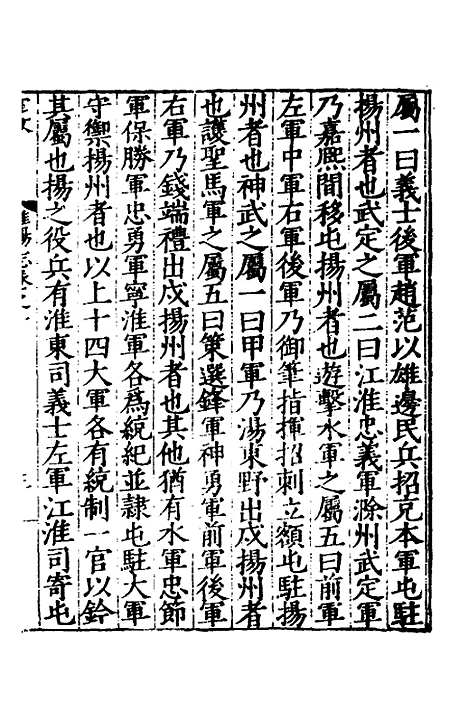 屬一曰義士後軍趙范以雄邊民兵招克本軍屯駐
揚州者也武定之屬二曰江淮忠義軍滁州武定軍
乃嘉熈間移屯揚州者也遊擊水軍之屬五曰前軍
左軍中軍右軍後軍乃御筆指揮招刺立額屯駐揚
州者也神武之屬一曰甲軍乃湯東野出戍揚州者
也護聖馬軍之屬五曰策選鋒軍神勇軍前軍後軍
右軍乃錢端禮出戍揚州者也其他猶有水軍忠節
軍保勝軍忠勇軍寧淮軍各爲統紀並隷屯駐大軍
守禦揚州者也以上十四大軍各有統制一官以鈐
其屬也揚之役兵有淮東司義士左軍江淮司寄屯